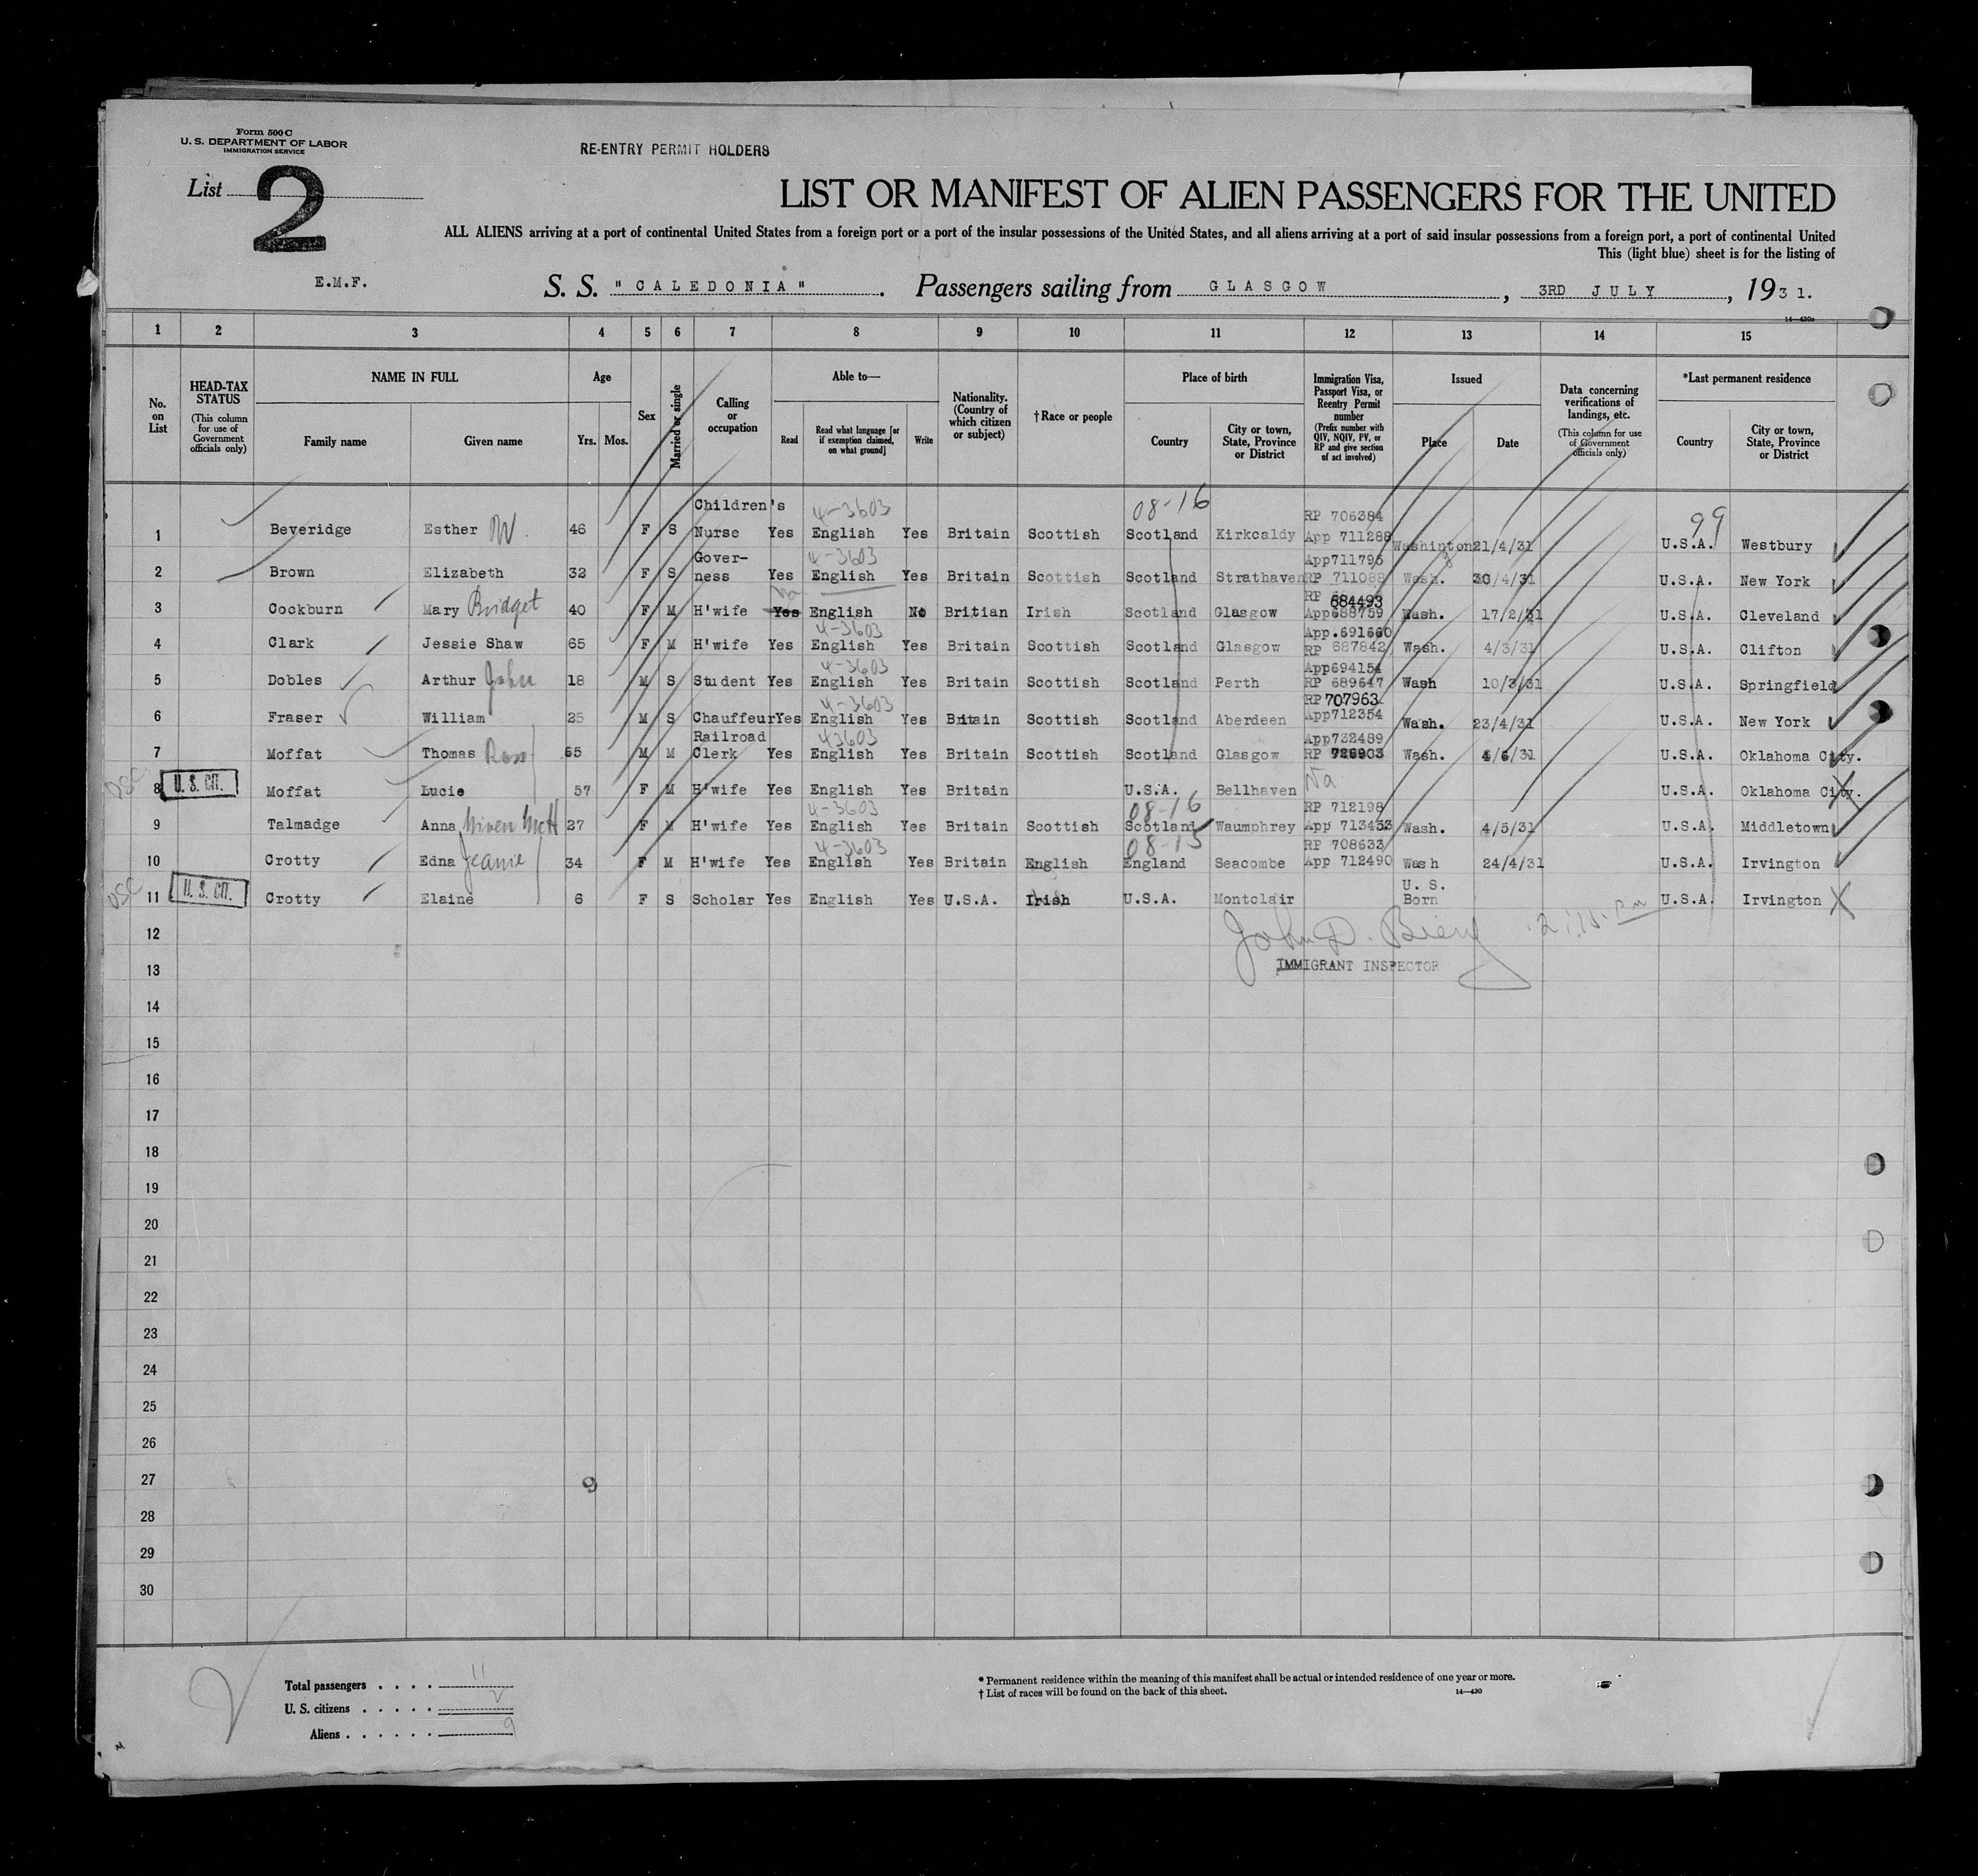 Form 500 C
U. S. DEPARTMENT OF LABOR
IMMIGRATION SERVICE
RE-ENTRY PERMIT HOLDERS
List 2
LIST OR MANIFEST OF ALIEN PASSENGERS FOR THE UNITED
ALL ALIENS arriving at a port of continental United States from a foreign port or a port of the insular possessions of the United States, and all aliens arriving at a port of said insular possessions from a foreign port, a port of continental United
This (light blue) sheet is for the listing of
E.M.F. S. S. "CALEDONIA". Passengers sailing from GLASGOW, 3RD JULY, 1931.
14—430c
1 2 3 4 5 6 7 8 9 10 11 12 13 14 15
No. on List
HEAD-TAX STATUS (This column for use of Government officials only)
NAME IN FULL
Family name Given name
Age
Yrs. Mos.
Sex
Married or single
Calling or occupation
Able to—
Read
Read what language [or if exemption claimed, on what ground]
Write
Nationality. (Country of which citizen or subject)
†Race or people
Place of birth
Country
City or town, State, Province or District
Immigration Visa, Passport Visa, or Reentry Permit number (Prefix number with QIV, NQIV, PV, or RP and give section of act involved)
Issued
Place Date
Data concerning verifications of landings, etc. (This column for use of Government officials only)
*Last permanent residence
Country
City or town, State, Province or District
Children's 4-3603 08-16 RP 706384 99
1 Beveridge Esther W. 46 F S Nurse Yes English Yes Britain Scottish Scotland Kirkcaldy App 711288 Washinton 21/4/31 U.S.A. Westbury
Gover- 4-3603 App711795
2 Brown Elizabeth 32 F S ness Yes English Yes Britain Scottish Scotland Strathaven RP 711088 Wash. 30/4/31 U.S.A. New York
No RP 684493
3 Cockburn Mary Bridget 40 F M H'wife Yes English No Britian Irish Scotland Glasgow App688759 Wash. 17/2/31 U.S.A. Cleveland
4-3603 App.691660
4 Clark Jessie Shaw 65 F M H'wife Yes English Yes Britain Scottish Scotland Glasgow RP 687842 Wash. 4/3/31 U.S.A. Clifton
4-3603 App694154
5 Dobles Arthur John 18 M S Student Yes English Yes Britain Scottish Scotland Perth RP 689647 Wash 10/3/31 U.S.A. Springfield
4-3603 RP 707963
6 Fraser William 25 M S Chauffeur Yes English Yes Britain Scottish Scotland Aberdeen App712354 Wash. 23/4/31 U.S.A. New York
Railroad 43603 App732489
7 Moffat Thomas Ross 65 M M Clerk Yes English Yes Britain Scottish Scotland Glasgow RP 726903 Wash. 4/6/31 U.S.A. Oklahoma City.
USC 8 U. S. CIT. Moffat Lucie 57 F M H'wife Yes English Yes Britain U.S.A. Bellhaven Na U.S.A. Oklahoma City.
4-3603 08-16 RP 712198
9 Talmadge Anna Niven McH 27 F M H'wife Yes English Yes Britain Scottish Scotland Waumphrey App 713433 Wash. 4/5/31 U.S.A. Middletown
4-3603 08-15 RP 708633
10 Crotty Edna Jeanie 34 F M H'wife Yes English Yes Britain English England Seacombe App 712490 Wash 24/4/31 U.S.A. Irvington
U. S.
USC 11 U. S. CIT. Crotty Elaine 6 F S Scholar Yes English Yes U.S.A. Irish U.S.A. Montclair Born U.S.A. Irvington
12
John D.
13 IMMIGRANT INSPECTOR
14
15
16
17
18
19
20
21
22
23
24
25
26
27 9
28
29
30
Total passengers . . . . 11
U. S. citizens . . . . . 2
Aliens . . . . . . 9
* Permanent residence within the meaning of this manifest shall be actual or intended residence of one year or more.
† List of races will be found on the back of this sheet. 14—430